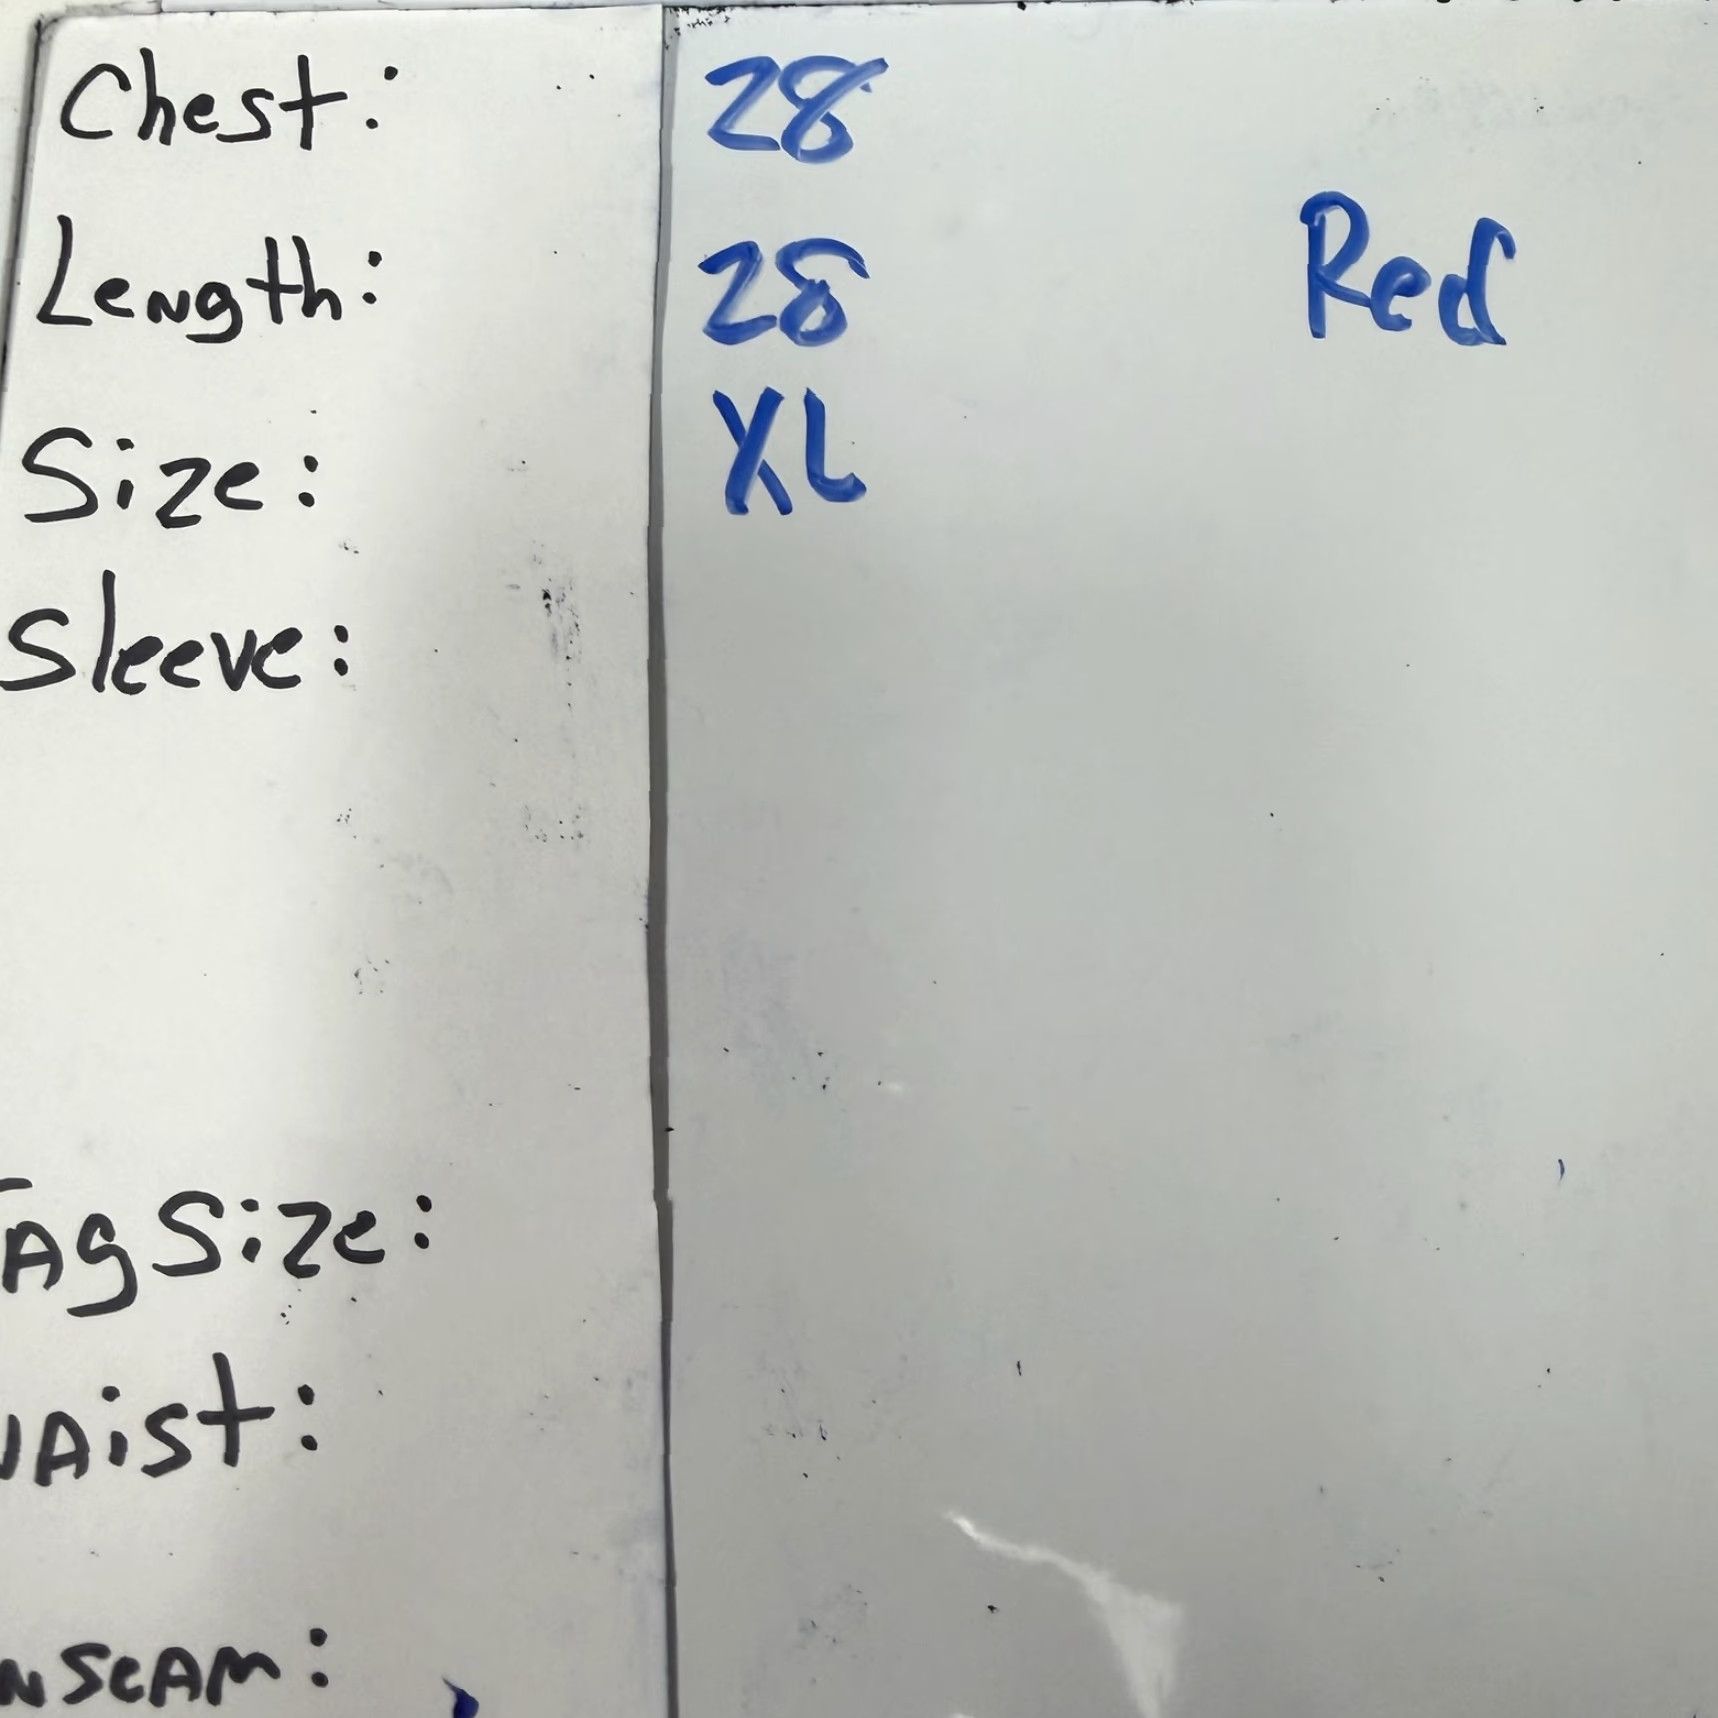 Chest: 28
Length: 28 Red
Size: XL
Sleeve:
Tag Size:
Waist:
Inseam: